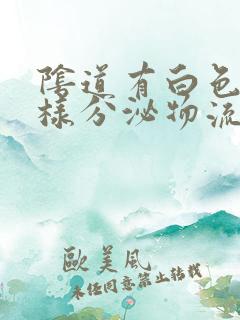 陰道有白色
樣分泌物流
歐美風
未任同意禁止转载